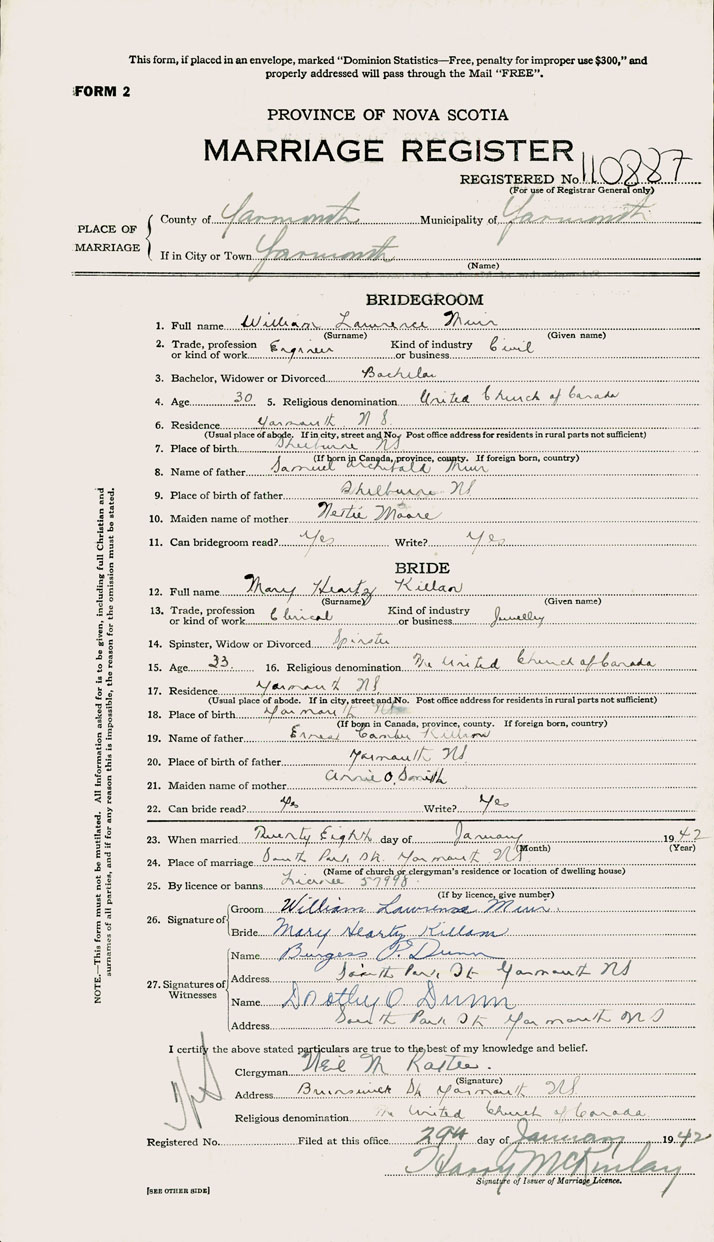 This form, if placed in an envelope, marked "Dominion Statistics—Free, penalty for improper use $300," and
properly addressed will pass through the Mail "FREE".
FORM 2
PROVINCE OF NOVA SCOTIA
MARRIAGE REGISTER
REGISTERED No. 110887
(For use of Registrar General only)
PLACE OF MARRIAGE
County of Yarmouth Municipality of Yarmouth
If in City or Town Yarmouth
(Name)
BRIDEGROOM
1. Full name William Lawrence Muir
(Surname) (Given name)
2. Trade, profession or kind of work Engineer Kind of industry or business Civil
3. Bachelor, Widower or Divorced Bachelor
4. Age 30 5. Religious denomination United Church of Canada
6. Residence Yarmouth N S.
(Usual place of abode. If in city, street and No. Post office address for residents in rural parts not sufficient)
7. Place of birth Shelburne NS
(If born in Canada, province, county. If foreign born, country)
8. Name of father Samuel Archibald Muir
9. Place of birth of father Shelburne NS
10. Maiden name of mother Nertie Moore
11. Can bridegroom read? Yes Write? Yes
BRIDE
12. Full name Mary Heartz Killam
(Surname) (Given name)
13. Trade, profession or kind of work Clerical Kind of industry or business Jewelley
14. Spinster, Widow or Divorced Spinster
15. Age 33. 16. Religious denomination The United Church of Canada
17. Residence Yarmouth NS
(Usual place of abode. If in city, street and No. Post office address for residents in rural parts not sufficient)
18. Place of birth Yarmouth NS
(If born in Canada, province, county. If foreign born, country)
19. Name of father Ernest Killam
20. Place of birth of father Yarmouth NS
21. Maiden name of mother Annie O. Smith
22. Can bride read? Yes Write? Yes
23. When married Twenty Eighth day of January 1942
(Month) (Year)
24. Place of marriage South Park St. Yarmouth NS
(Name of church or clergyman's residence or location of dwelling house)
25. By licence or banns License 57998
(If by licence, give number)
26. Signature of
Groom William Lawrence Muir.
Bride Mary Heartz Killam
27. Signatures of Witnesses
Name Burgess P. Dunn
Address South Park St Yarmouth NS
Name Dorothy O Dunn
Address South Park St Yarmouth NS
I certify the above stated particulars are true to the best of my knowledge and belief.
Clergyman Neil M
(Signature)
Address Brunswick St Yarmouth NS
Religious denomination The United Church of Canada
Registered No. Filed at this office 29th day of January 1942
Harry McKinlay
Signature of Issuer of Marriage Licence.
[SEE OTHER SIDE]
NOTE.—This form must not be mutilated. All information asked for is to be given, including full Christian and
surnames of all parties, and if for any reason this is impossible, the reason for the omission must be stated.